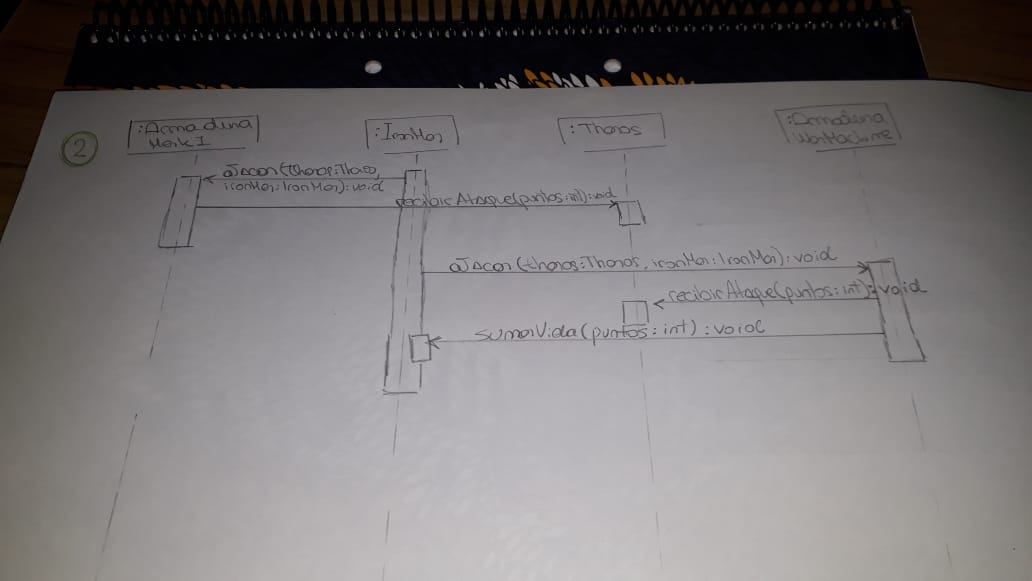 2
:Armadura
Mark I
:IronMan
:Thanos
:Armadura
WarMachine
atacar(thanos:Thanos,
ironMan:IronMan):void
recibirAtaque(puntos:int):void
atacar(thanos:Thanos, ironMan:IronMan):void
recibirAtaque(puntos:int):void
sumarVida(puntos:int):void